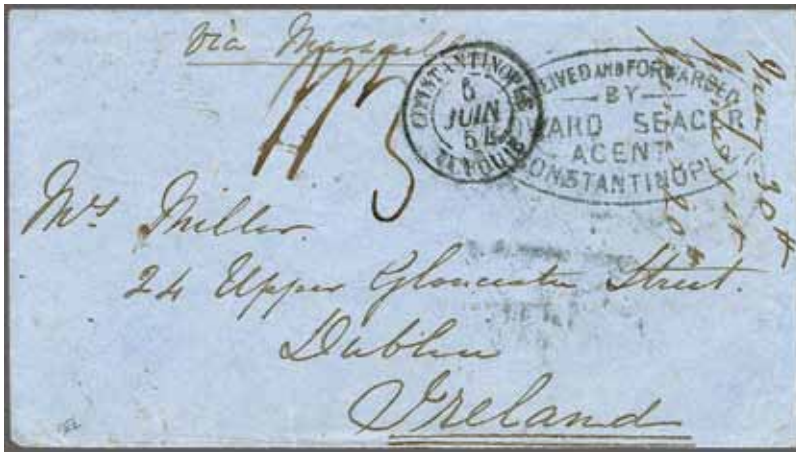 Via Marseill
CONSTANTINOPLE
5
JUIN
54
TURQUIE
EIVED AND FORWARDED
BY
DWARD SEAGER
AGENT
ONSTANTINOPL
30th
20th
Mrs Miller
24 Upper Gloucester Street.
Dublin
Ireland